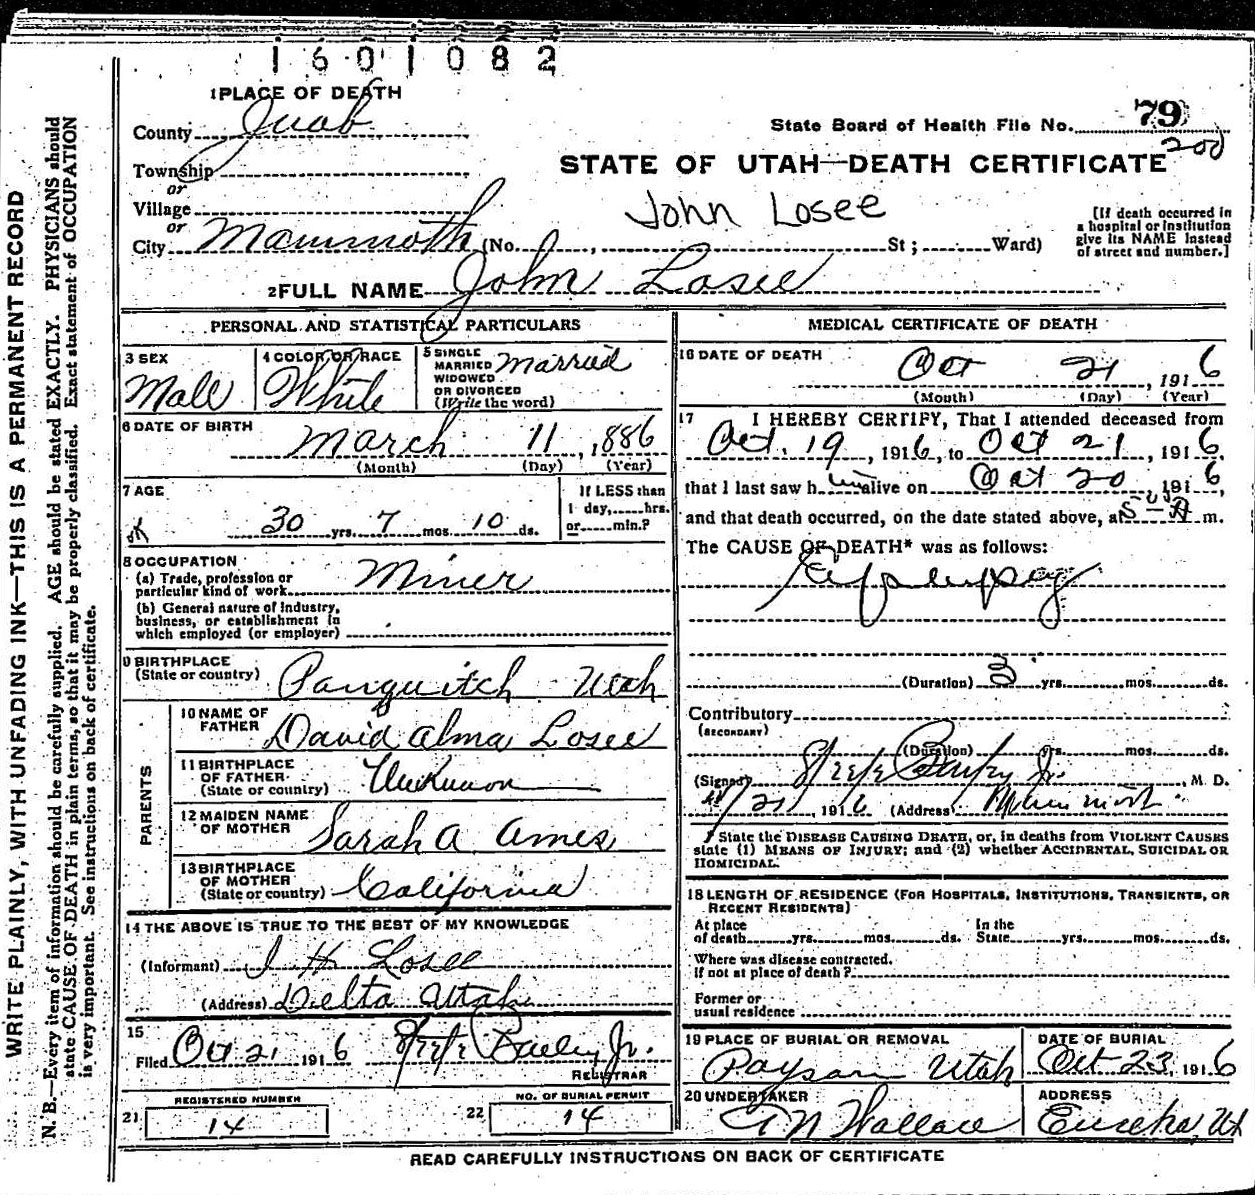 1601082
1 PLACE OF DEATH
County Juab
State Board of Health File No. 79
200
Township
STATE OF UTAH—DEATH CERTIFICATE
or
Village
John Losee
or
City Mammoth (No. , St; Ward)
[If death occurred in
a hospital or institution
give its NAME instead
of street and number.]
2 FULL NAME John Losee
PERSONAL AND STATISTICAL PARTICULARS
3 SEX
Male
4 COLOR OR RACE
White
5 SINGLE
MARRIED
WIDOWED
OR DIVORCED
(Write the word)
Married
6 DATE OF BIRTH
March 11, 1886
(Month) (Day) (Year)
7 AGE
30 yrs. 7 mos. 10 ds.
If LESS than
1 day, hrs.
or min.?
8 OCCUPATION
(a) Trade, profession or
particular kind of work Miner
(b) General nature of industry,
business, or establishment in
which employed (or employer)
9 BIRTHPLACE
(State or country) Panguitch Utah
PARENTS
10 NAME OF
FATHER David Alma Losee
11 BIRTHPLACE
OF FATHER
(State or country) Unknown
12 MAIDEN NAME
OF MOTHER Sarah A Ames
13 BIRTHPLACE
OF MOTHER
(State or country) California
14 THE ABOVE IS TRUE TO THE BEST OF MY KNOWLEDGE
(Informant) I H Losee
(Address) Delta Utah
15
Filed Oct 21 1916 Bailey Jr.
REGISTRAR
REGISTERED NUMBER
21 14
NO. OF BURIAL PERMIT
22 14
MEDICAL CERTIFICATE OF DEATH
16 DATE OF DEATH
Oct 21, 1916
(Month) (Day) (Year)
17 I HEREBY CERTIFY, That I attended deceased from
Oct. 19, 1916, to Oct 21, 1916,
that I last saw him alive on Oct 20 1916,
and that death occurred, on the date stated above, at 5 A m.
The CAUSE OF DEATH* was as follows:
(Duration) 3 yrs. mos. ds.
Contributory
(SECONDARY)
(Duration) yrs. mos. ds.
(Signed) Jr. , M. D.
21, 1916 (Address) Mammoth
* State the DISEASE CAUSING DEATH, or, in deaths from VIOLENT CAUSES
state (1) MEANS OF INJURY; and (2) whether ACCIDENTAL, SUICIDAL OR
HOMICIDAL.
18 LENGTH OF RESIDENCE (FOR HOSPITALS, INSTITUTIONS, TRANSIENTS, OR
RECENT RESIDENTS)
At place
of death yrs. mos. ds. In the
State yrs. mos. ds.
Where was disease contracted.
If not at place of death?
Former or
usual residence
19 PLACE OF BURIAL OR REMOVAL
Payson Utah
DATE OF BURIAL
Oct 23, 1916
20 UNDERTAKER
T N Wallace
ADDRESS
Eureka Ut
READ CAREFULLY INSTRUCTIONS ON BACK OF CERTIFICATE
WRITE PLAINLY, WITH UNFADING INK—THIS IS A PERMANENT RECORD
N. B.—Every item of information should be carefully supplied. AGE should be stated EXACTLY. PHYSICIANS should
state CAUSE OF DEATH in plain terms, so that it may be properly classified. Exact statement of OCCUPATION
is very important. See instructions on back of certificate.